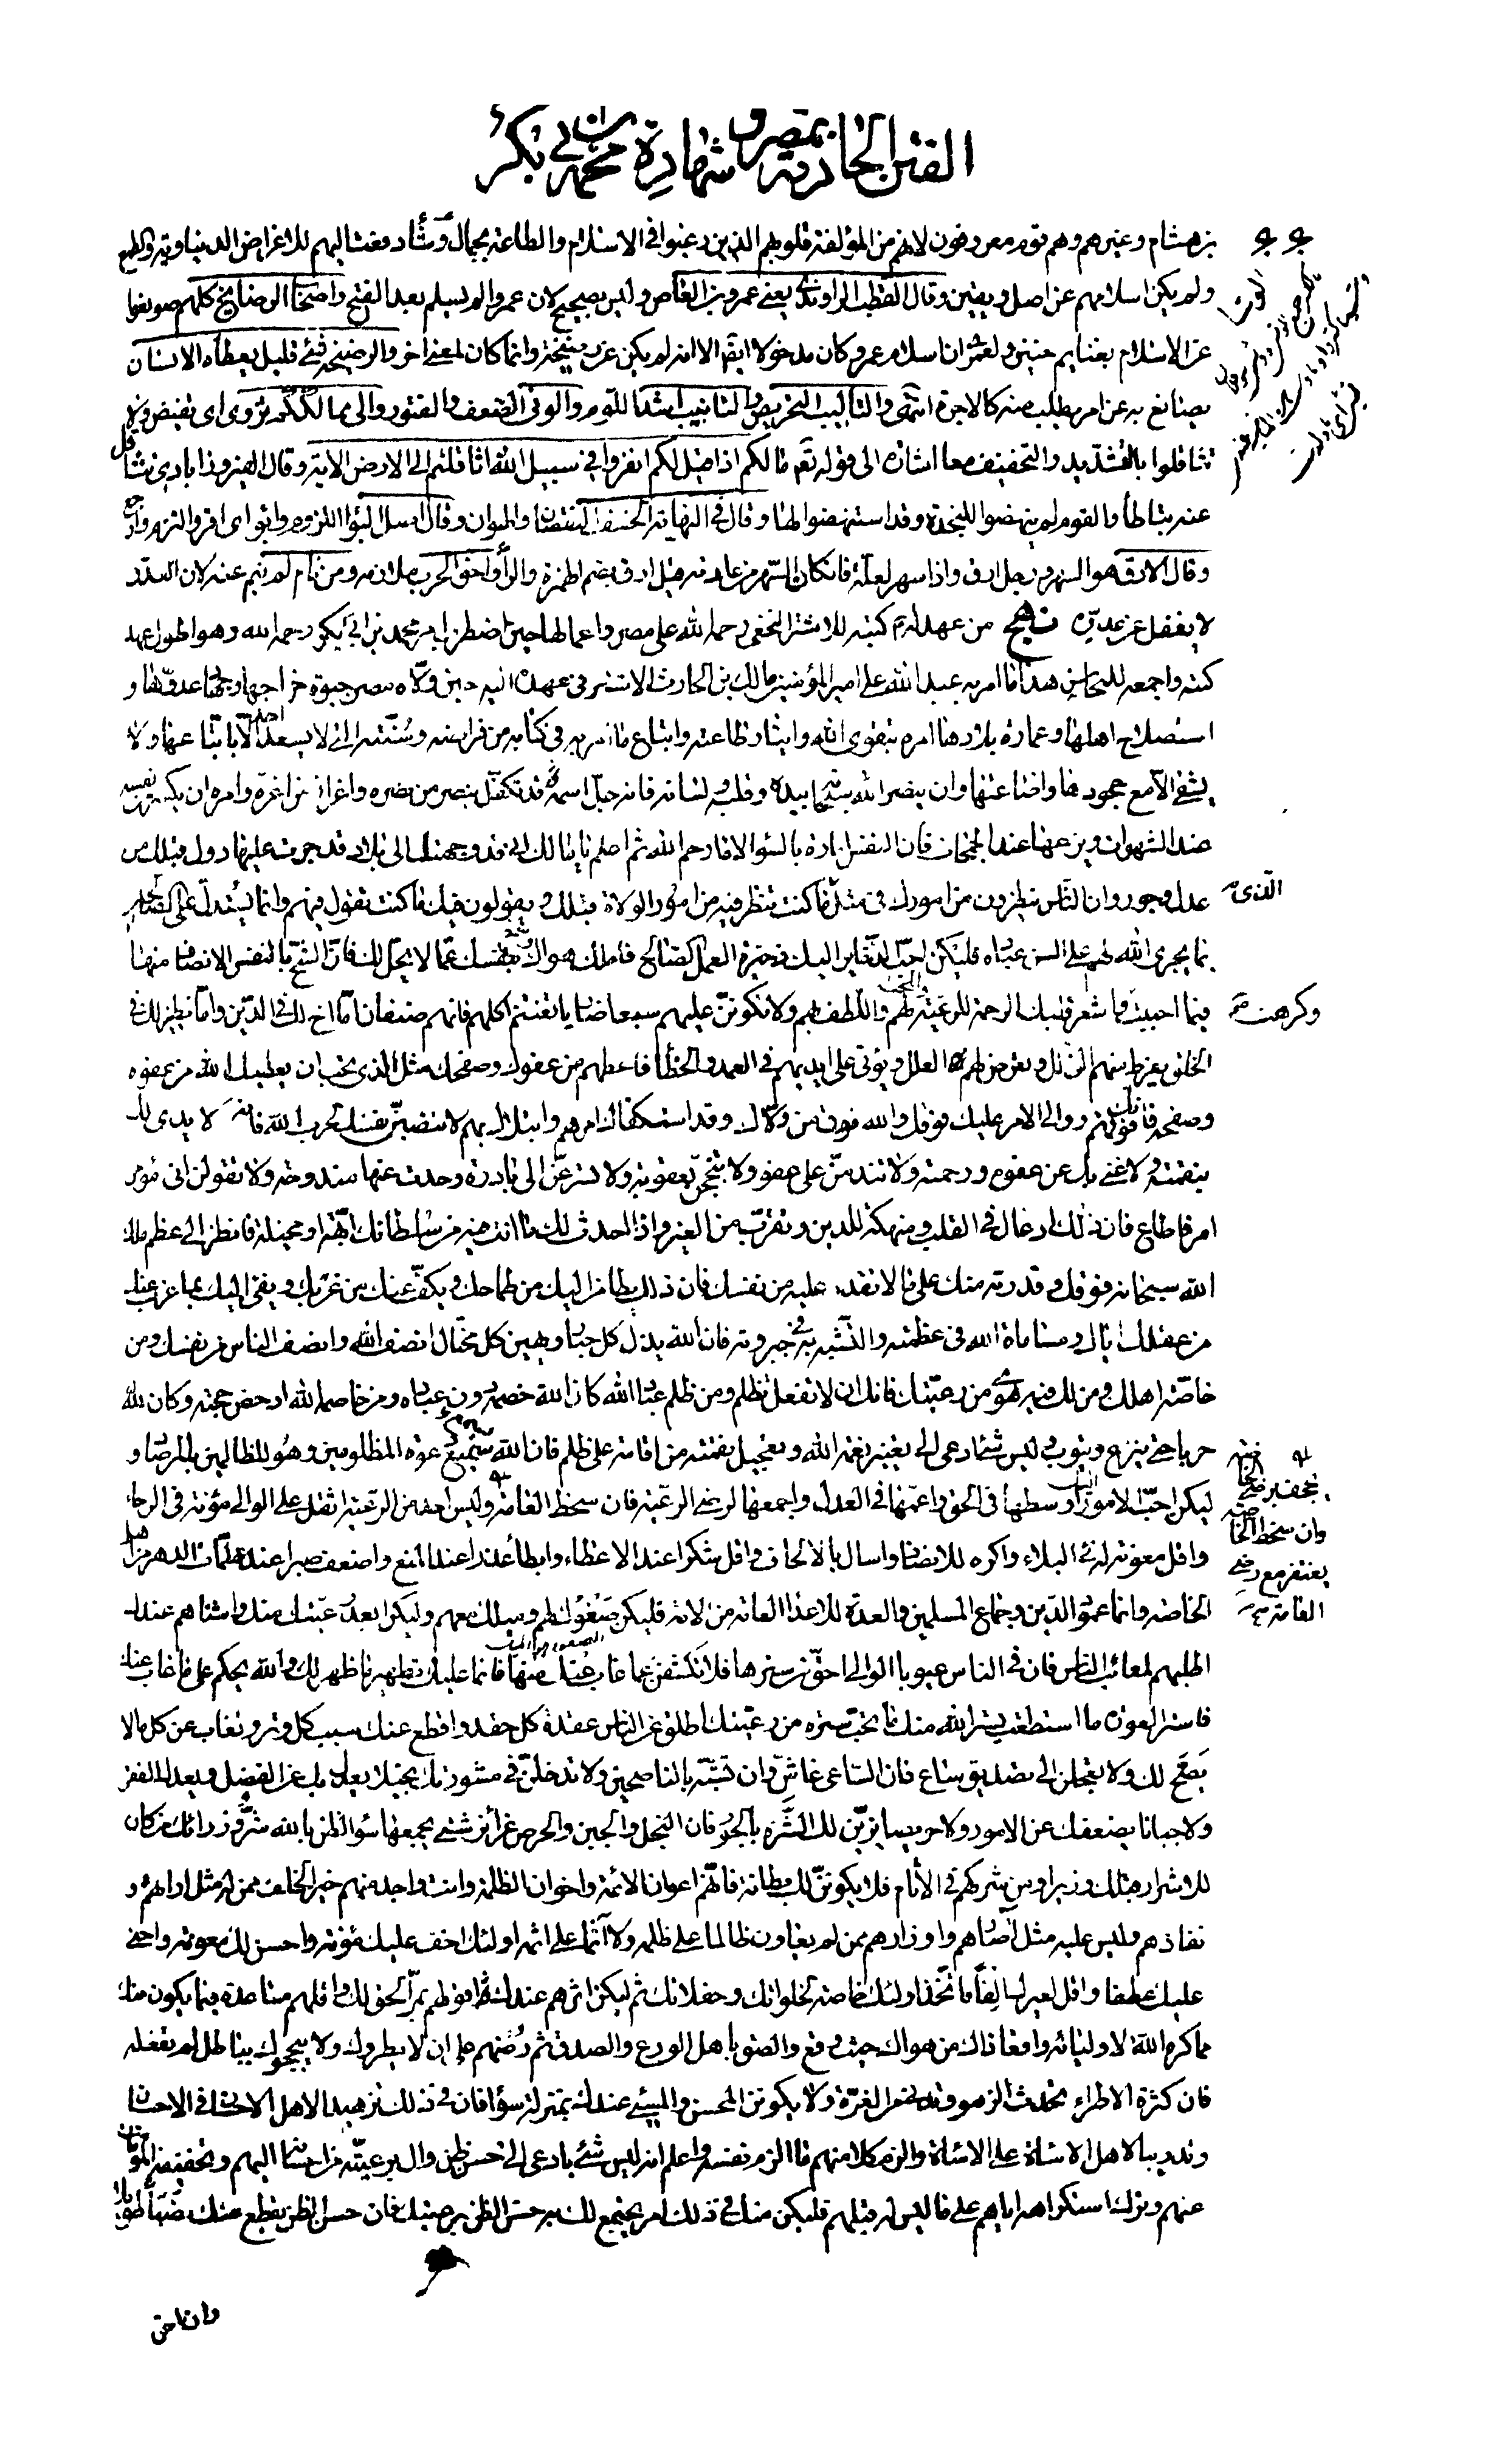 الفتن الحادثة بمصر و شهادة محمد بن ابي بكر
بن هشام وغيرهم وهم قوم معروفون لانهم من المؤلفة قلوبهم الذين رغبوا في الاسلام والطاعة بجمال وشاء دفعت اليهم للاغراض الدنياوية والطمع
ولم يكن اسلامهم عن اصل ويقين وقال القطب الراوندي يعني عمرو بن العاص وليس بصحيح لان عمروا لم يسلم بعد الفتح واصحاب الرضايخ كلهم صونعوا
عن الاسلام بغنايم حنين ولعمري ان اسلام عمرو كان مدخولا ايضا الا انه لم يكن عن رضيخة وانما كان لمعنى اخر والرضيخة شيء قليل يعطاه الانسان
يصانع به عن امر يطلب منه كالاجرة انتهى والتأليب التحريص والتانيب اشد اللوم والونى الضعف والفتور والى ممالككم تزوى اى تقبض ولا
تثاقلوا بالتشديد والتخفيف معا اشارة الى قوله تعم مالكم اذا قيل لكم انفروا في سبيل الله اثاقلتم الى الارض الاية وقال الفيروزابادي تثاقل
عنه تباطأ والقوم لم ينهضوا للنجدة وقد استنهضوا لها وقال في النهاية الخسف النقصان والهوان وقال اصل البواء اللزوم وابوء اى اقر والتزم وارجع
وقال الارق هو السهر ورجل ارق اذا سهر لعلة فان كان السهر من عادته قيل ارق بضم الهمزة والراء واخو الحرب ملازمه ومن نام لم ينم عنه لان العدو
لا يغفل عن عدوه نهج من عهد له ع كتبه للاشتر النخعي رحمه الله على مصر واعمالها حين اضطرب امر محمد بن ابي بكر رحمه الله وهو اطول عهد
كتبه واجمعه للمحاسن هذا ما امر به عبد الله على امير المؤمنين مالك بن الحارث الاشتر في عهده اليه حين ولاه مصر جبوة خراجها وجهاد عدوها و
استصلاح اهلها وعمارة بلادها امره بتقوى الله وايثار طاعته واتباع ما امر به في كتابه من فرائضه وسننه التي لا يسعد احد الا باتباعها ولا
يشقى الا مع جحودها واضاعتها وان ينصر الله سبحانه بيده وقلبه ولسانه فانه جل اسمه قد تكفل بنصر من نصره واعزاز من اعزه وامره ان يكسر نفسه
عند الشهوات ويزعها عند الجمحات فان النفس امارة بالسوء الا ما رحم الله ثم اعلم يا مالك اني قد وجهتك الى بلاد قد جرت عليها دول قبلك من
عدل وجور وان الناس ينظرون من امورك في مثل ما كنت تنظر فيه من امور الولاة قبلك ويقولون فيك ما كنت تقول فيهم وانما يستدل على الصالحين
الذي
بما يجرى الله لهم على السن عباده فليكن احب الذخاير اليك ذخيرة العمل الصالح فاملك هواك وشح بنفسك عما لا يحل لك فان الشح بالنفس الانصاف منها
فيما احببت وكرهت واشعر قلبك الرحمة للرعية والمحبة لهم واللطف بهم ولا تكونن عليهم سبعا ضاريا تغتنم اكلهم فانهم صنفان اما اخ لك في الدين واما نظير لك في
الخلق يفرط منهم الزلل وتعرض لهم العلل ويؤتى على ايديهم في العمد والخطأ فاعطهم من عفوك وصفحك مثل الذى تحب ان يعطيك الله من عفوه
وصفحه فانك فوقهم ووالى الامر عليك فوقك والله فوق من ولاك وقد استكفاك امرهم وابتلاك بهم لا تنصبن نفسك لحرب الله فانه لا يدى لك
بنقمته ولا غنى بك عن عفوه ورحمته ولا تندمن على عفو ولا تبجحن بعقوبة ولا تسرعن الى بادرة وجدت عنها مندوحة ولا تقولن انى مؤمر
امر فاطاع فان ذلك ادغال في القلب ومنهكة للدين وتقرب من الغير واذا احدث لك ما انت فيه من سلطانك ابهة او مخيلة فانظر الى عظم ملك
الله سبحانه فوقك وقدرته منك على ما لا تقدر عليه من نفسك فان ذلك يطامن اليك من طماحك ويكف عنك من غربك ويفىء اليك بما عزب عنك
من عقلك اياك ومساماة الله في عظمته والتشبه به في جبروته فان الله يذل كل جبار ويهين كل مختال انصف الله وانصف الناس من نفسك ومن
خاصة اهلك ومن لك فيه هوى من رعيتك فانك ان لا تفعل تظلم ومن ظلم عباد الله كان الله خصمه دون عباده ومن خاصمه الله ادحض حجته وكان لله
حربا حتى ينزع ويتوب وليس شىء ادعى الى تغيير نعمة الله وتعجيل نقمته من اقامة على ظلم فان الله سميع دعوة المظلومين وهو للظالمين بالمرصاد و
ليكن احب الامور اليك اوسطها في الحق واعمها في العدل واجمعها لرضى الرعية فان سخط العامة وليس احد من الرعية اثقل على الوالى مؤنة في الرخاء
يجحف برضى الخاصة
وان سخط الخاصة
يغتفر مع رضى
العامة صح
واقل معونة له في البلاء واكره للانصاف واسال بالالحاف واقل شكرا عند الاعطاء وابطأ عذرا عند المنع واضعف صبرا عند ملمات الدهر من اهل
الخاصة وانما عمود الدين وجماع المسلمين والعدة للاعداء العامة من الامة فليكن صغوك لهم وميلك معهم وليكن ابعد رعيتك منك واشناهم عندك
اطلبهم لمعائب الناس فان في الناس عيوبا الوالى احق من سترها فلا تكشفن عما غاب عنك منها فانما عليك تطهير ما ظهر لك والله يحكم على ما غاب عنك
فاستر العورة ما استطعت يستر الله منك ما تحب ستره من رعيتك اطلق عن الناس عقدة كل حقد واقطع عنك سبب كل وتر وتغاب عن كل ما لا
يضح لك ولا تعجلن الى تصديق ساع فان الساعى غاش وان تشبه بالناصحين ولا تدخلن في مشورتك بخيلا يعدل بك عن الفضل ويعدك الفقر
ولا جبانا يضعفك عن الامور ولا حريصا يزين لك الشره بالجور فان البخل والجبن والحرص غرائز شتى يجمعها سوء الظن بالله شر وزرائك من كان
للاشرار قبلك وزيرا ومن شركهم في الأثام فلا يكونن لك بطانة فانهم اعوان الاثمة واخوان الظلمة وانت واجد منهم خير الخلف ممن له مثل ارائهم و
نفاذهم وليس عليه مثل آصارهم واوزارهم ممن لم يعاون ظالما على ظلمه ولا آثما على اثمه اولئك اخف عليك مؤنة واحسن لك معونة واحنى
عليك عطفا واقل لغيرك الفا فاتخذ اولئك خاصة لخلواتك وحفلاتك ثم ليكن اثرهم عندك اقولهم بمر الحق لك واقلهم مساعدة فيما يكون منك
مما كره الله لاوليائه واقعا ذلك من هواك حيث وقع والصق باهل الورع والصدق ثم رضهم على ان لا يطروك ولا يبجحوك بباطل لم تفعله
فان كثرة الاطراء تحدث الزهو وتدنى من الغرة ولا يكونن المحسن والمسىء عندك بمنزلة سواء فان في ذلك تزهيدا لاهل الاحسان في الاحسان
وتدريبا لاهل الاساءة على الاساءة والزم كلا منهم ما الزم نفسه واعلم انه ليس شىء بادعى الى حسن ظن وال برعيته من احسانه اليهم وتخفيفه المؤنات
عنهم وترك استكراهه اياهم على ما ليس له قبلهم فليكن منك في ذلك امر يجتمع لك به حسن الظن برعيتك فان حسن الظن يقطع عنك نصبا طويلا
وان احق